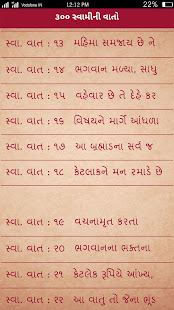 Vodafone IN
12:12 PM
82%
૩૦૦ સ્વામીની વાતો
સ્વા. વાત : ૧૩ મહિમા સમજાય છે ને
સ્વા. વાત : ૧૪ ભગવાન મળ્યા, સાધુ
સ્વા. વાત : ૧૫ વહેવાર છે તે દેહે કર
સ્વા. વાત : ૧૬ વિષયને માર્ગે આંધળા
સ્વા. વાત : ૧૭ આ બ્રહ્માંડના સર્વ જ
સ્વા. વાત : ૧૮ કેટલાકને મન રમાડે છે
સ્વા. વાત : ૧૯ વચનામૃત કરતા
સ્વા. વાત : ૨૦ ભગવાનના ભક્તના
સ્વા. વાત : ૨૧ કેટલેક રૂપિયે આંખ્ય,
સ્વા. વાત : ૨૨ આ વાતુ તો જેના ભૂંડ